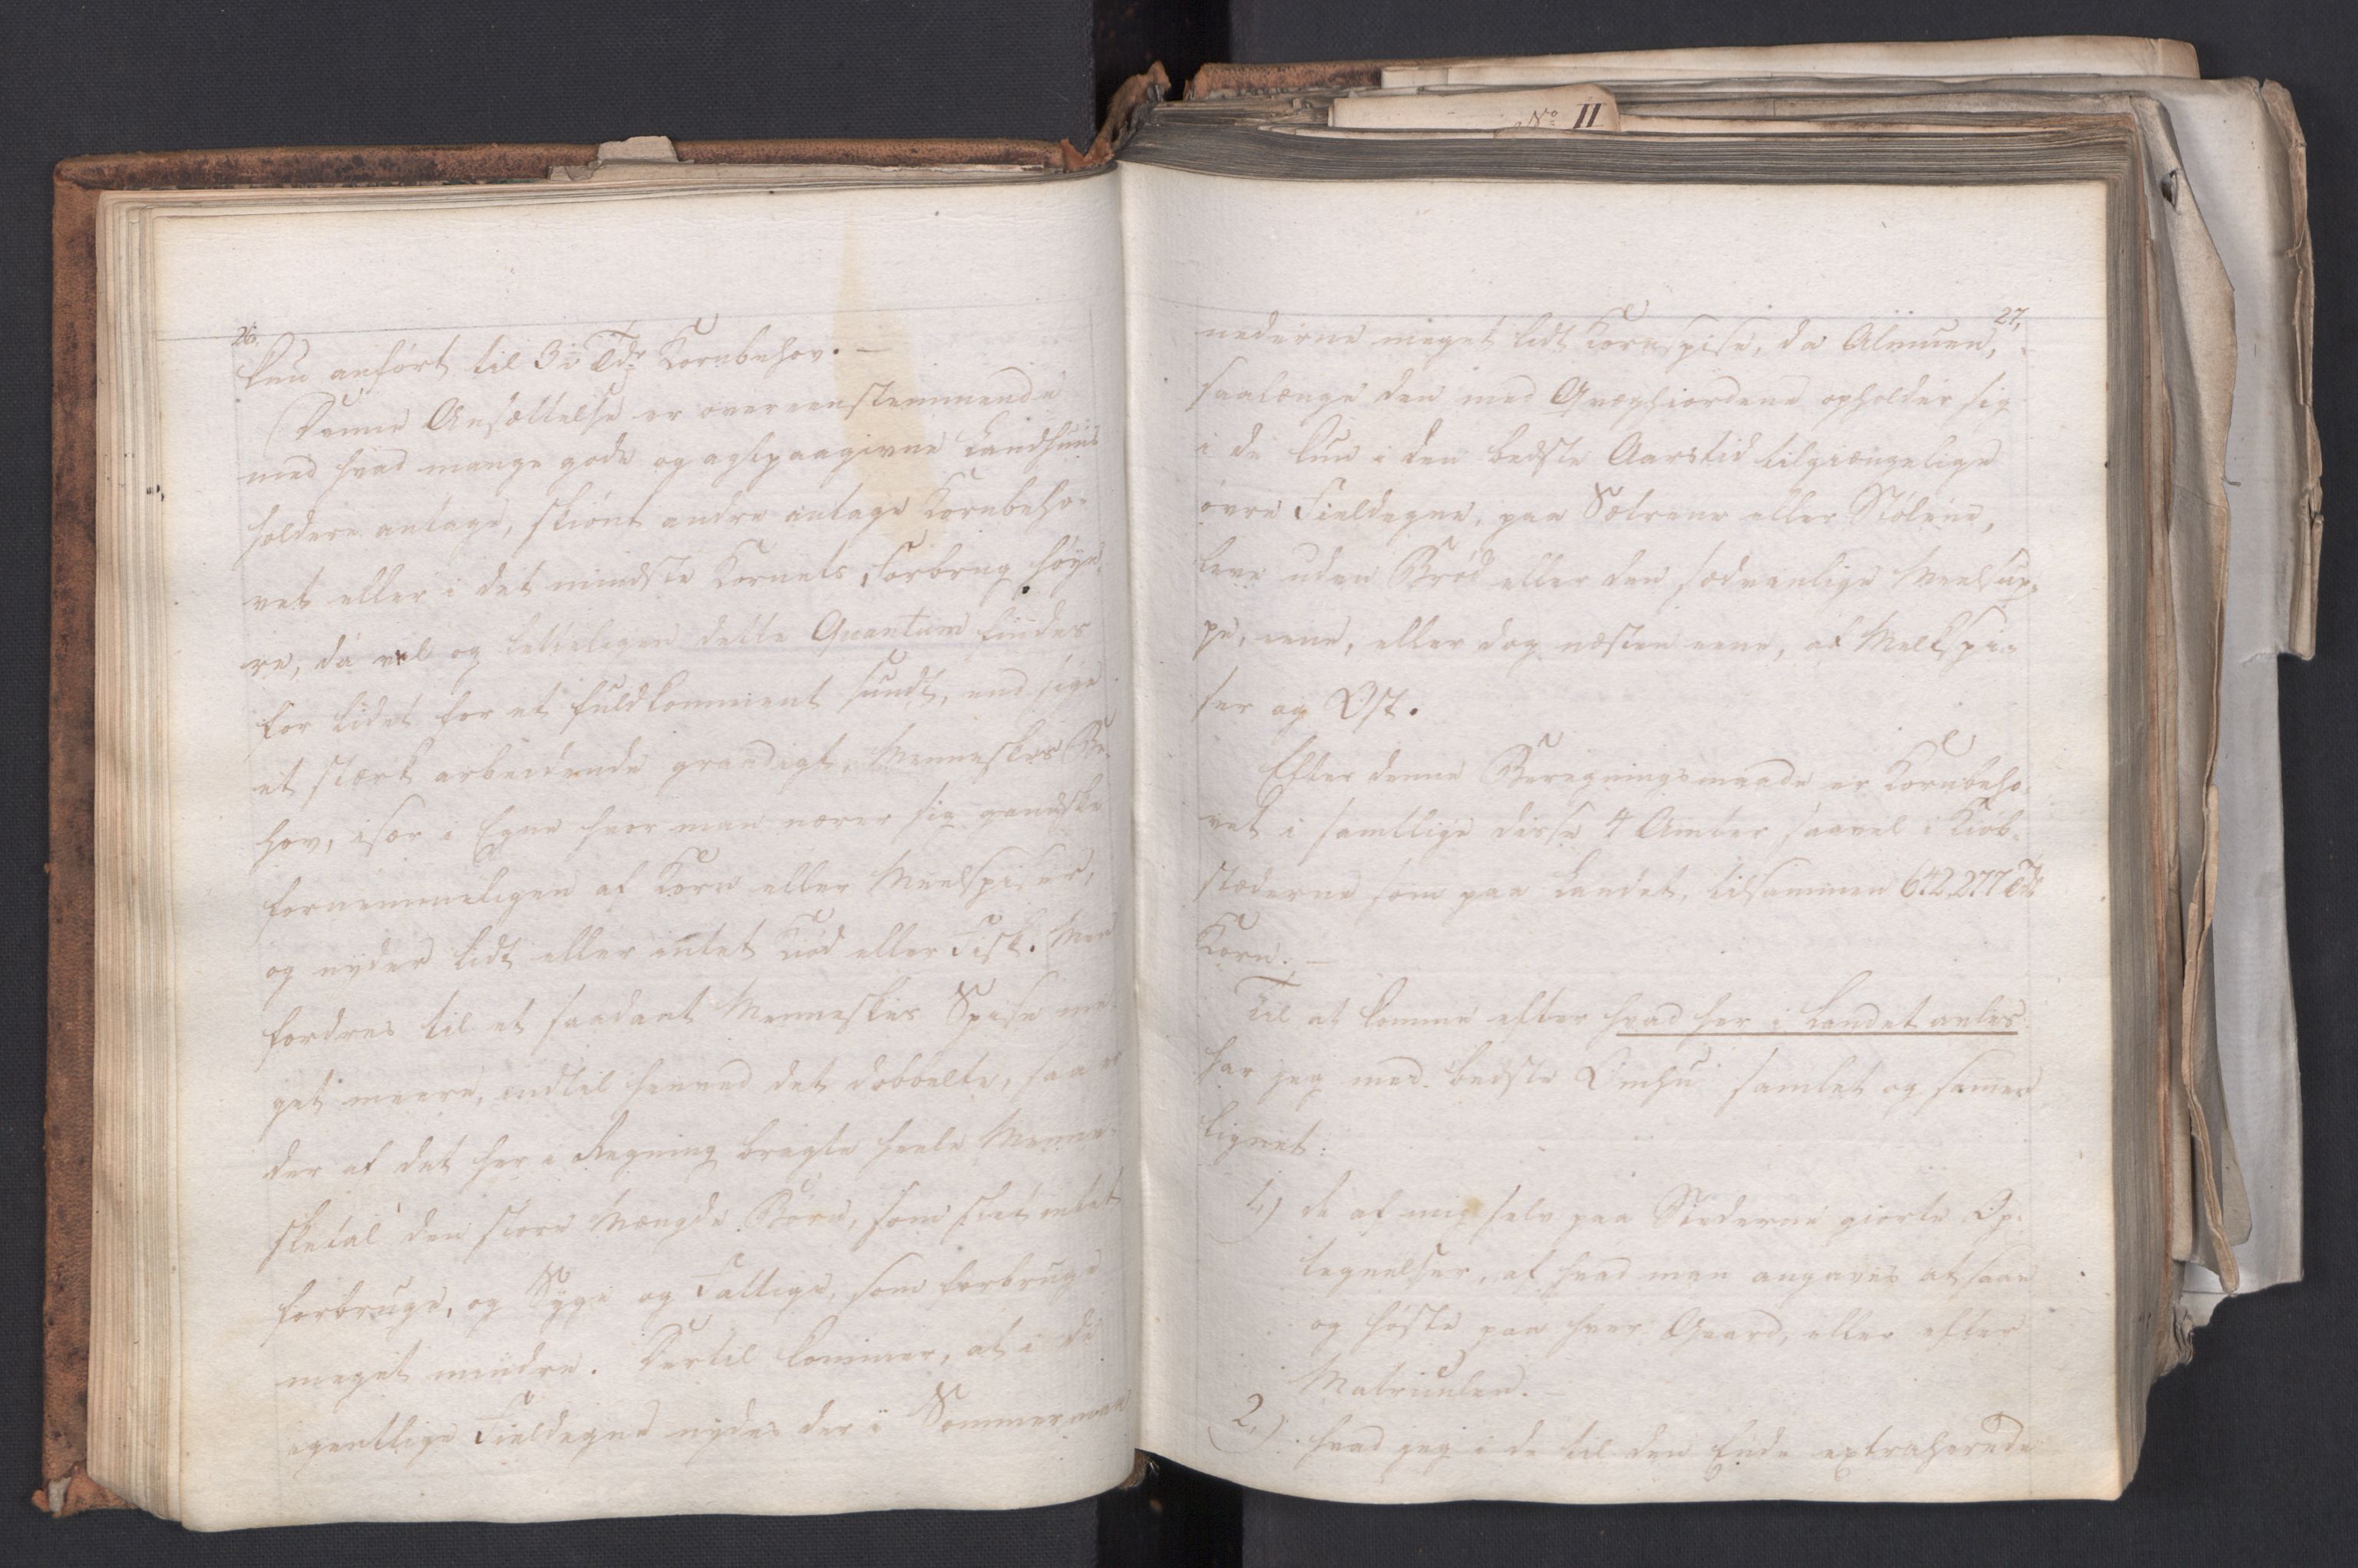 26.
kun anført til 3 Tdr Kornbehov. —
Denne Ansættelse er overeensstemmende
med hvad mange gode og agtpaagivne Landhuus
holdere antage, skiønt andre antage Kornbeho-
vet eller i det mindste Kornets Forbrug høye-
re, da vel og letteligen dette Quantum findes
for lidet for et fuldkomment sundt, end sige
et stærk arbeidende Menneskes Be-
hov, især i Egne hvor man nærer sig gandske
fornemmeligen af Korn eller Meelspiser,
og nyder lidt eller intet Kiød eller Fisk. Men
fordres til et saadant Menneskes Spise me-
get meere, indtil henved det dobbelte, saa er
der af det her i Regning bragte heele Menne-
sketal den store Mængde Børn, som slet intet
forbruge, og Syge og Fattige, som forbruge
meget mindre. Dertil kommer, at i de
egentlige Fieldegne nydes der i Sommermaa
27,
nederne meget lidt Kornspise, da Almuen,
saalænge den med Qvæghiordene opholder sig
i de kun i den bedste Aarstid tilgiængelige
øvre Fieldegne, paa Sætrene eller Stølene,
leve uden Brød eller den sædvanlige Meelsup-
pe, eene, eller dog næsten eene, af Melkspi-
ser og Ost.
Efter denne Beregningsmaade er Kornbeho-
vet i samtlige disse 4 Amter saavel i Kiøb-
stæderne som paa Landet, tilsammen 642,277 Tdr
Korn. —
Til at komme efter hvad her i Landet avles
har jeg med bedste Omhu samlet og sammen
lignet:
1,) de af mig selv paa Stederne giorte Op-
tegnelser, af hvad man angaves at saae
og høste paa hver Gaard, eller efter
Matriculen. —
2,) hvad jeg i de til den Ende extraherede
No II